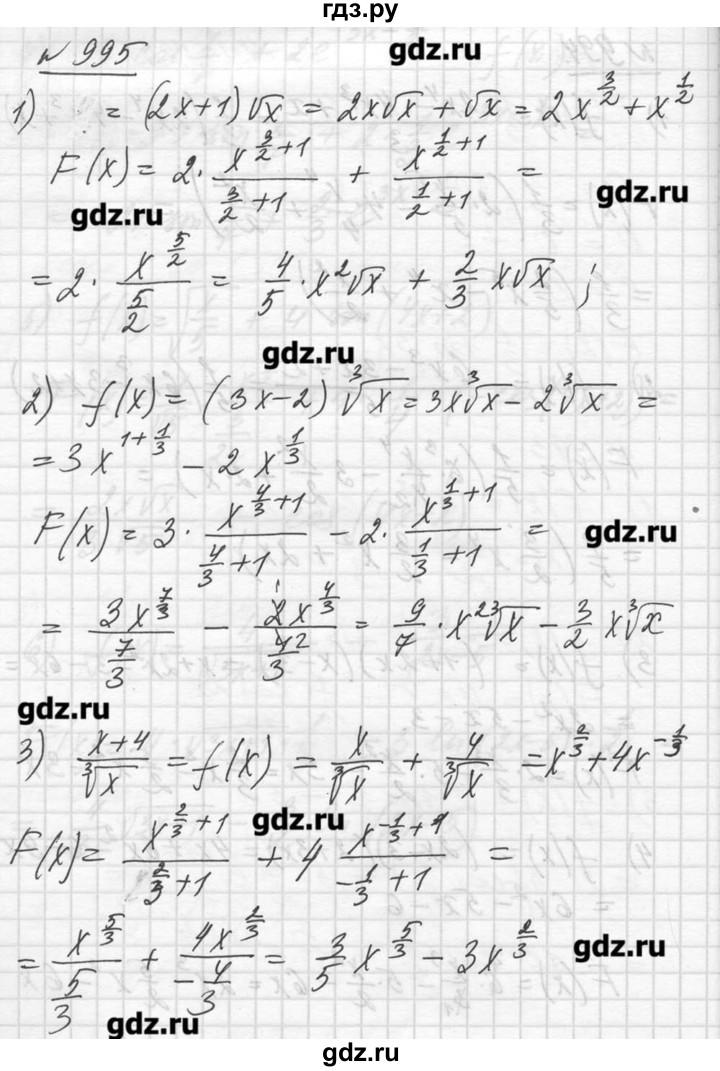 гдз.ру
gdz.ru
№ 995
1) = (2x+1)√x = 2x√x + √x = 2x^{3/2} + x^{1/2}
F(x) = 2 · x^{3/2+1}/(3/2+1) + x^{1/2+1}/(1/2+1) =
gdz.ru
gdz.ru
= 2 · x^{5/2}/(5/2) = 4/5 · x²√x + 2/3 x√x ;
gdz.ru
2) f(x) = (3x-2) ∛x = 3x∛x - 2∛x =
= 3x^{1+1/3} - 2x^{1/3}
F(x) = 3 · x^{4/3+1}/(4/3+1) - 2 · x^{1/3+1}/(1/3+1) =
gdz.ru
= 3x^{7/3}/(7/3) - 2x^{4/3}/(4/3) = 9/7 · x²∛x - 3/2 x∛x
gdz.ru
3) (x+4)/∛x = f(x) = x/∛x + 4/∛x = x^{2/3} + 4x^{-1/3}
gdz.ru
F(x) = x^{2/3+1}/(2/3+1) + 4 x^{-1/3+1}/(-1/3+1) =
= x^{5/3}/(5/3) + 4x^{2/3}/(-4/3) = 3/5 x^{5/3} - 3x^{2/3}
gdz.ru
gdz.ru
gdz.ru